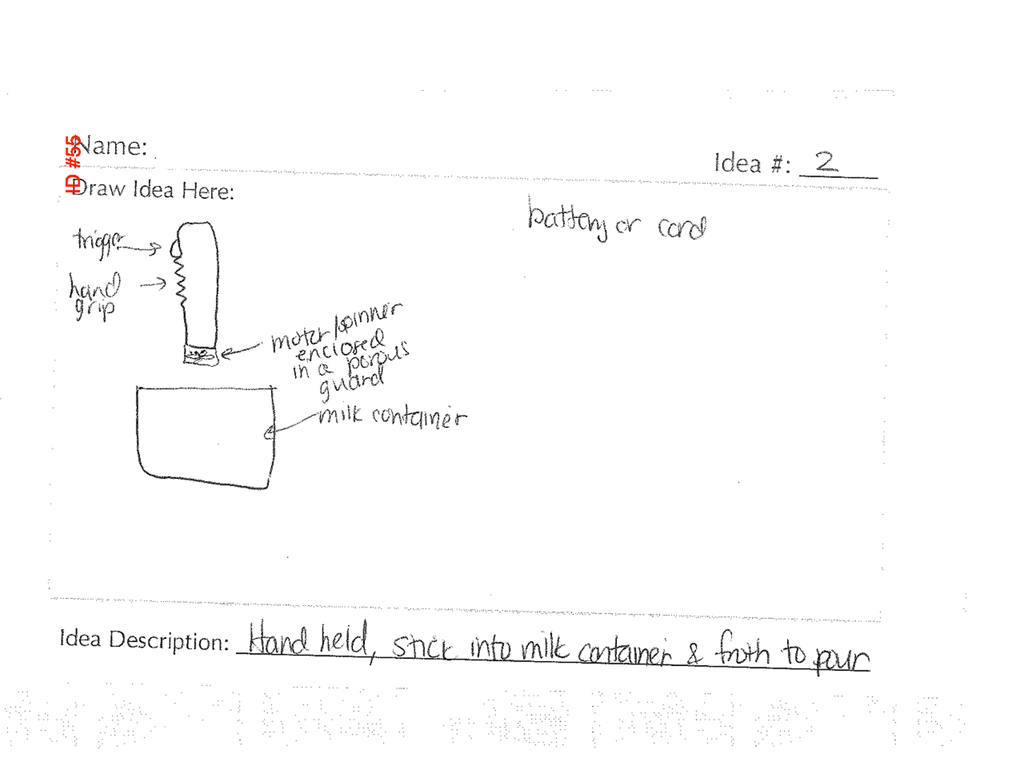 ID #55
Name:
Idea #: 2
Draw Idea Here:
battery or cord
trigger
hand
grip
motor/spinner
enclosed
in a porous
guard
milk container
Idea Description: Hand held, stick into milk container & froth to pour